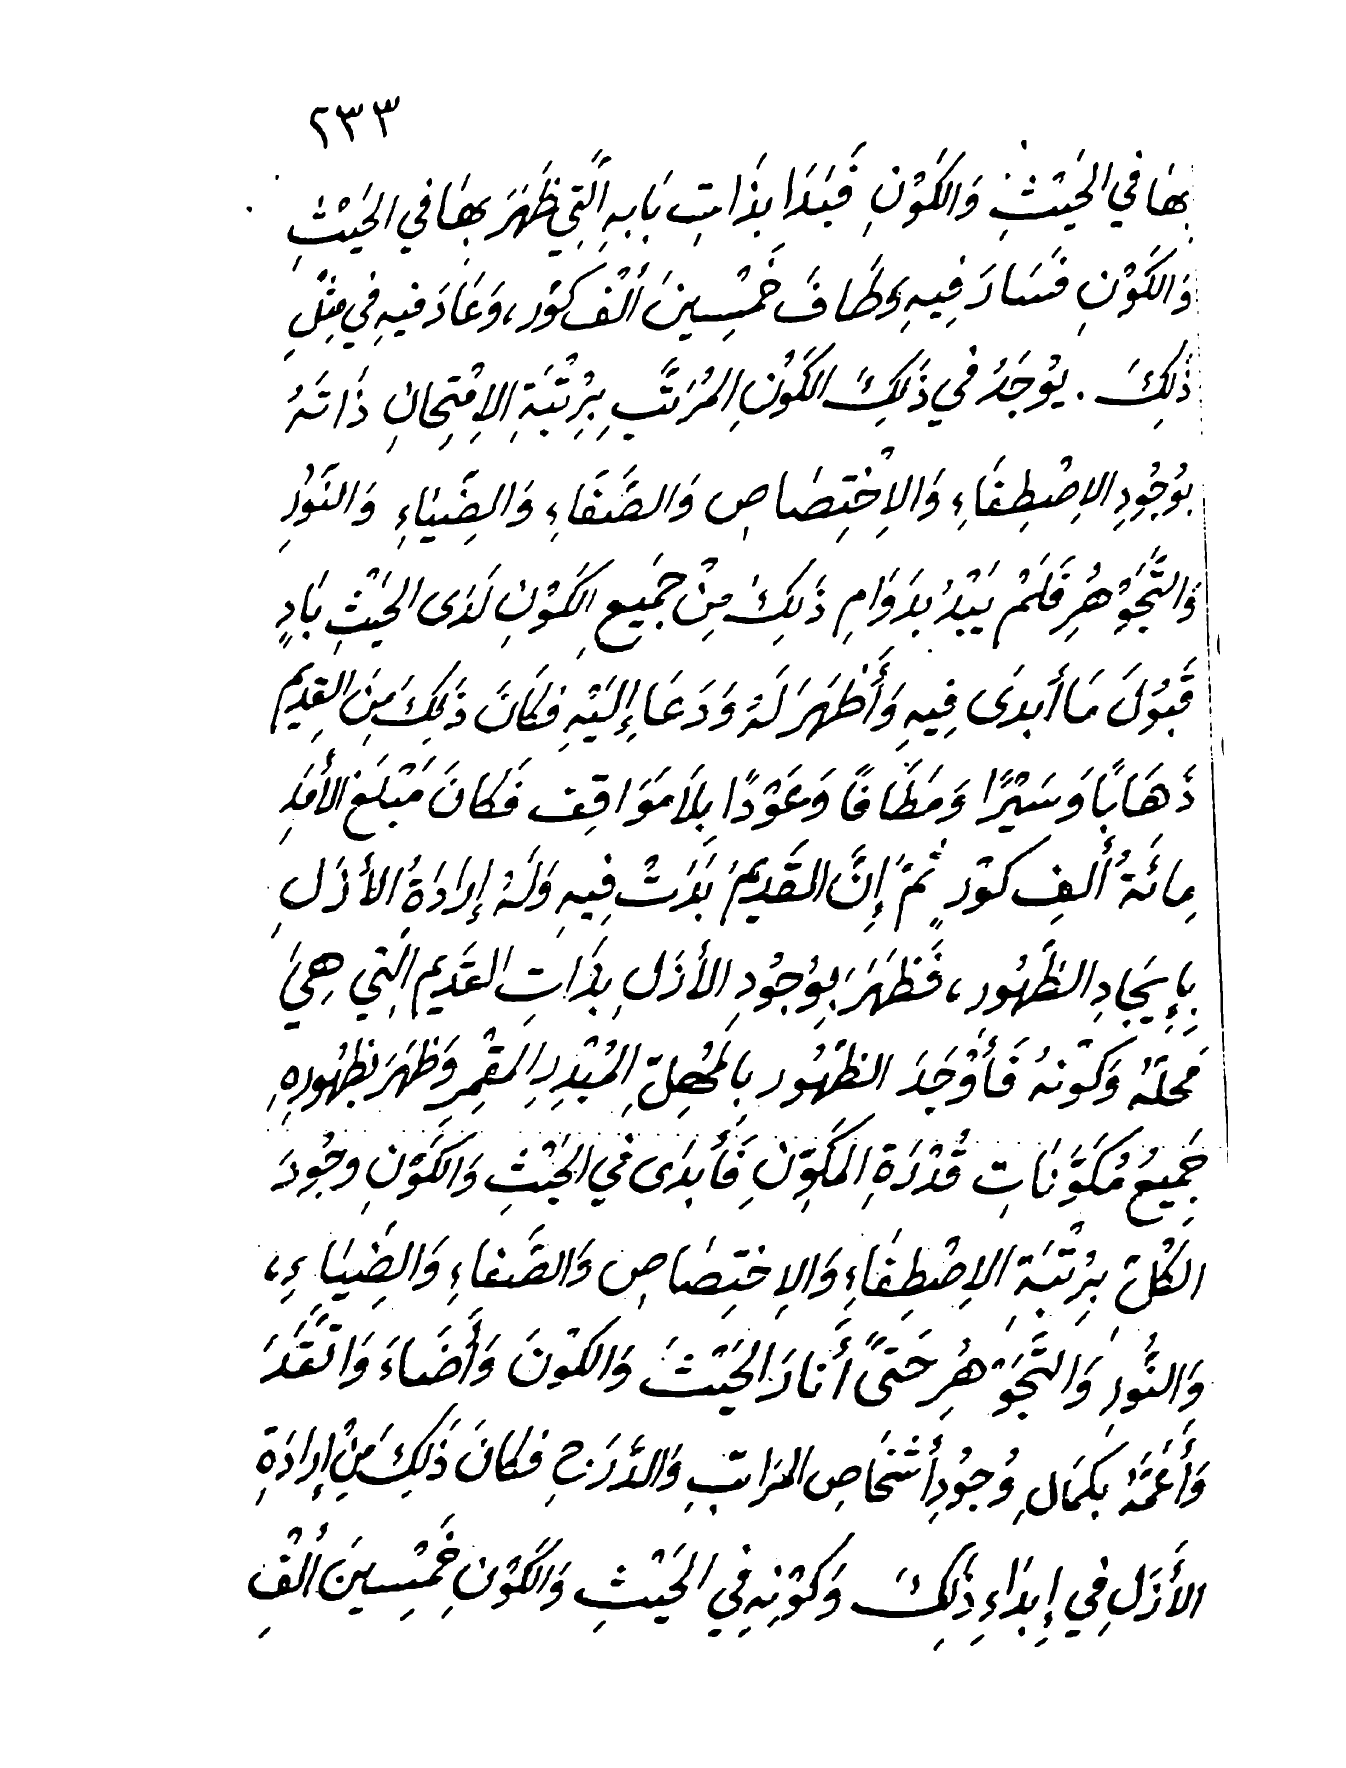 ٢٣٣
بِهَا فِي الحَيْثِ وَالكَوْنِ فَبَدَا بِذَاتِ بَابِهِ الَّتِي ظَهَرَ بِهَا فِي الحَيْثِ
وَالكَوْنِ فَسَارَ فِيهِ وَطَافَ خَمْسِينَ أَلْفَ كَوْر، وَعَادَ فِيهِ فِي مِثْلِ
ذَلِكَ . يُوجَدُ فِي ذَلِكَ الكَوْنِ المُرَتَّبِ بِرُتْبَةِ الاِمْتِحَانِ ذَاتَهُ
بِوُجُودِ الاِصْطِفَاءِ وَالاِخْتِصَاصِ وَالصَّفَاءِ وَالضِّيَاءِ وَالنُّورِ
وَالتَّجَوْهُرِ فَلَمْ يَبْدُ بِدَوَامِ ذَلِكَ مِنْ جَمِيعِ الكَوْنِ لَدَى الحَيْثِ بَادٍ
قَبُولَ مَا أَبْدَى فِيهِ وَأَظْهَرَ لَهُ وَدَعَا إِلَيْهِ فَكَانَ ذَلِكَ مِنَ القِدِيمِ
ذَهَابًا وَسَيْرًا وَمَطَافًا وَعَوْدًا بِلاَ مَوَاقِف فَكَانَ مَبْلَغ الأَمَدِ
مِائَةُ أَلفِ كَوْرٍ ثُمَّ إِنَّ القَدِيمُ بَدَتْ فِيهِ وَلَهُ إِرَادَةُ الأَزَلِ
بِإِيجَادِ الظُّهُورِ، فَظَهَرَ بِوُجُودِ الأَزَلِ بِذَاتِ القَدِيمِ الَّتِي هِيَ
مَحِلَّهُ وَكَوْنهُ فَأَوْجَدَ الظُّهُور بِالمُهِلِّ المُبْدِرِ المُقْمِرِ وَظَهَرَ بِظُهُورِهِ
جَمِيعُ مُكَوَّنَاتِ قُدْرَةِ المُكَوِّنِ فَأَبْدَى فِي الحَيْثِ وَالكَوْنِ وجُودَ
الكُلِّ بِرُتْبَةِ الاِصْطِفَاءِ وَالاِختِصَاصِ وَالصَّفَاءِ وَالضِّيَاءِ،
وَالنُّورِ وَالتَّجَوْهُرِ حَتَّى أَنَارَ الحَيْثَ وَالكَوْنَ وَأَضَاءَ وَاتَّقَدَ
وَأَعَمَّهُ بِكَمَالِ وُجُودِ أَشْخَاصِ المَرَاتِبِ وَالدَّرَجِ فَكَانَ ذَلِكَ مِنْ إِرَادَةِ
الأَزَلِ فِي إِبدَاءِ ذَلِكَ وَكَوْنِهِ فِي الحَيْثِ وَالكَوْنِ خَمْسِينَ أَلْفِ